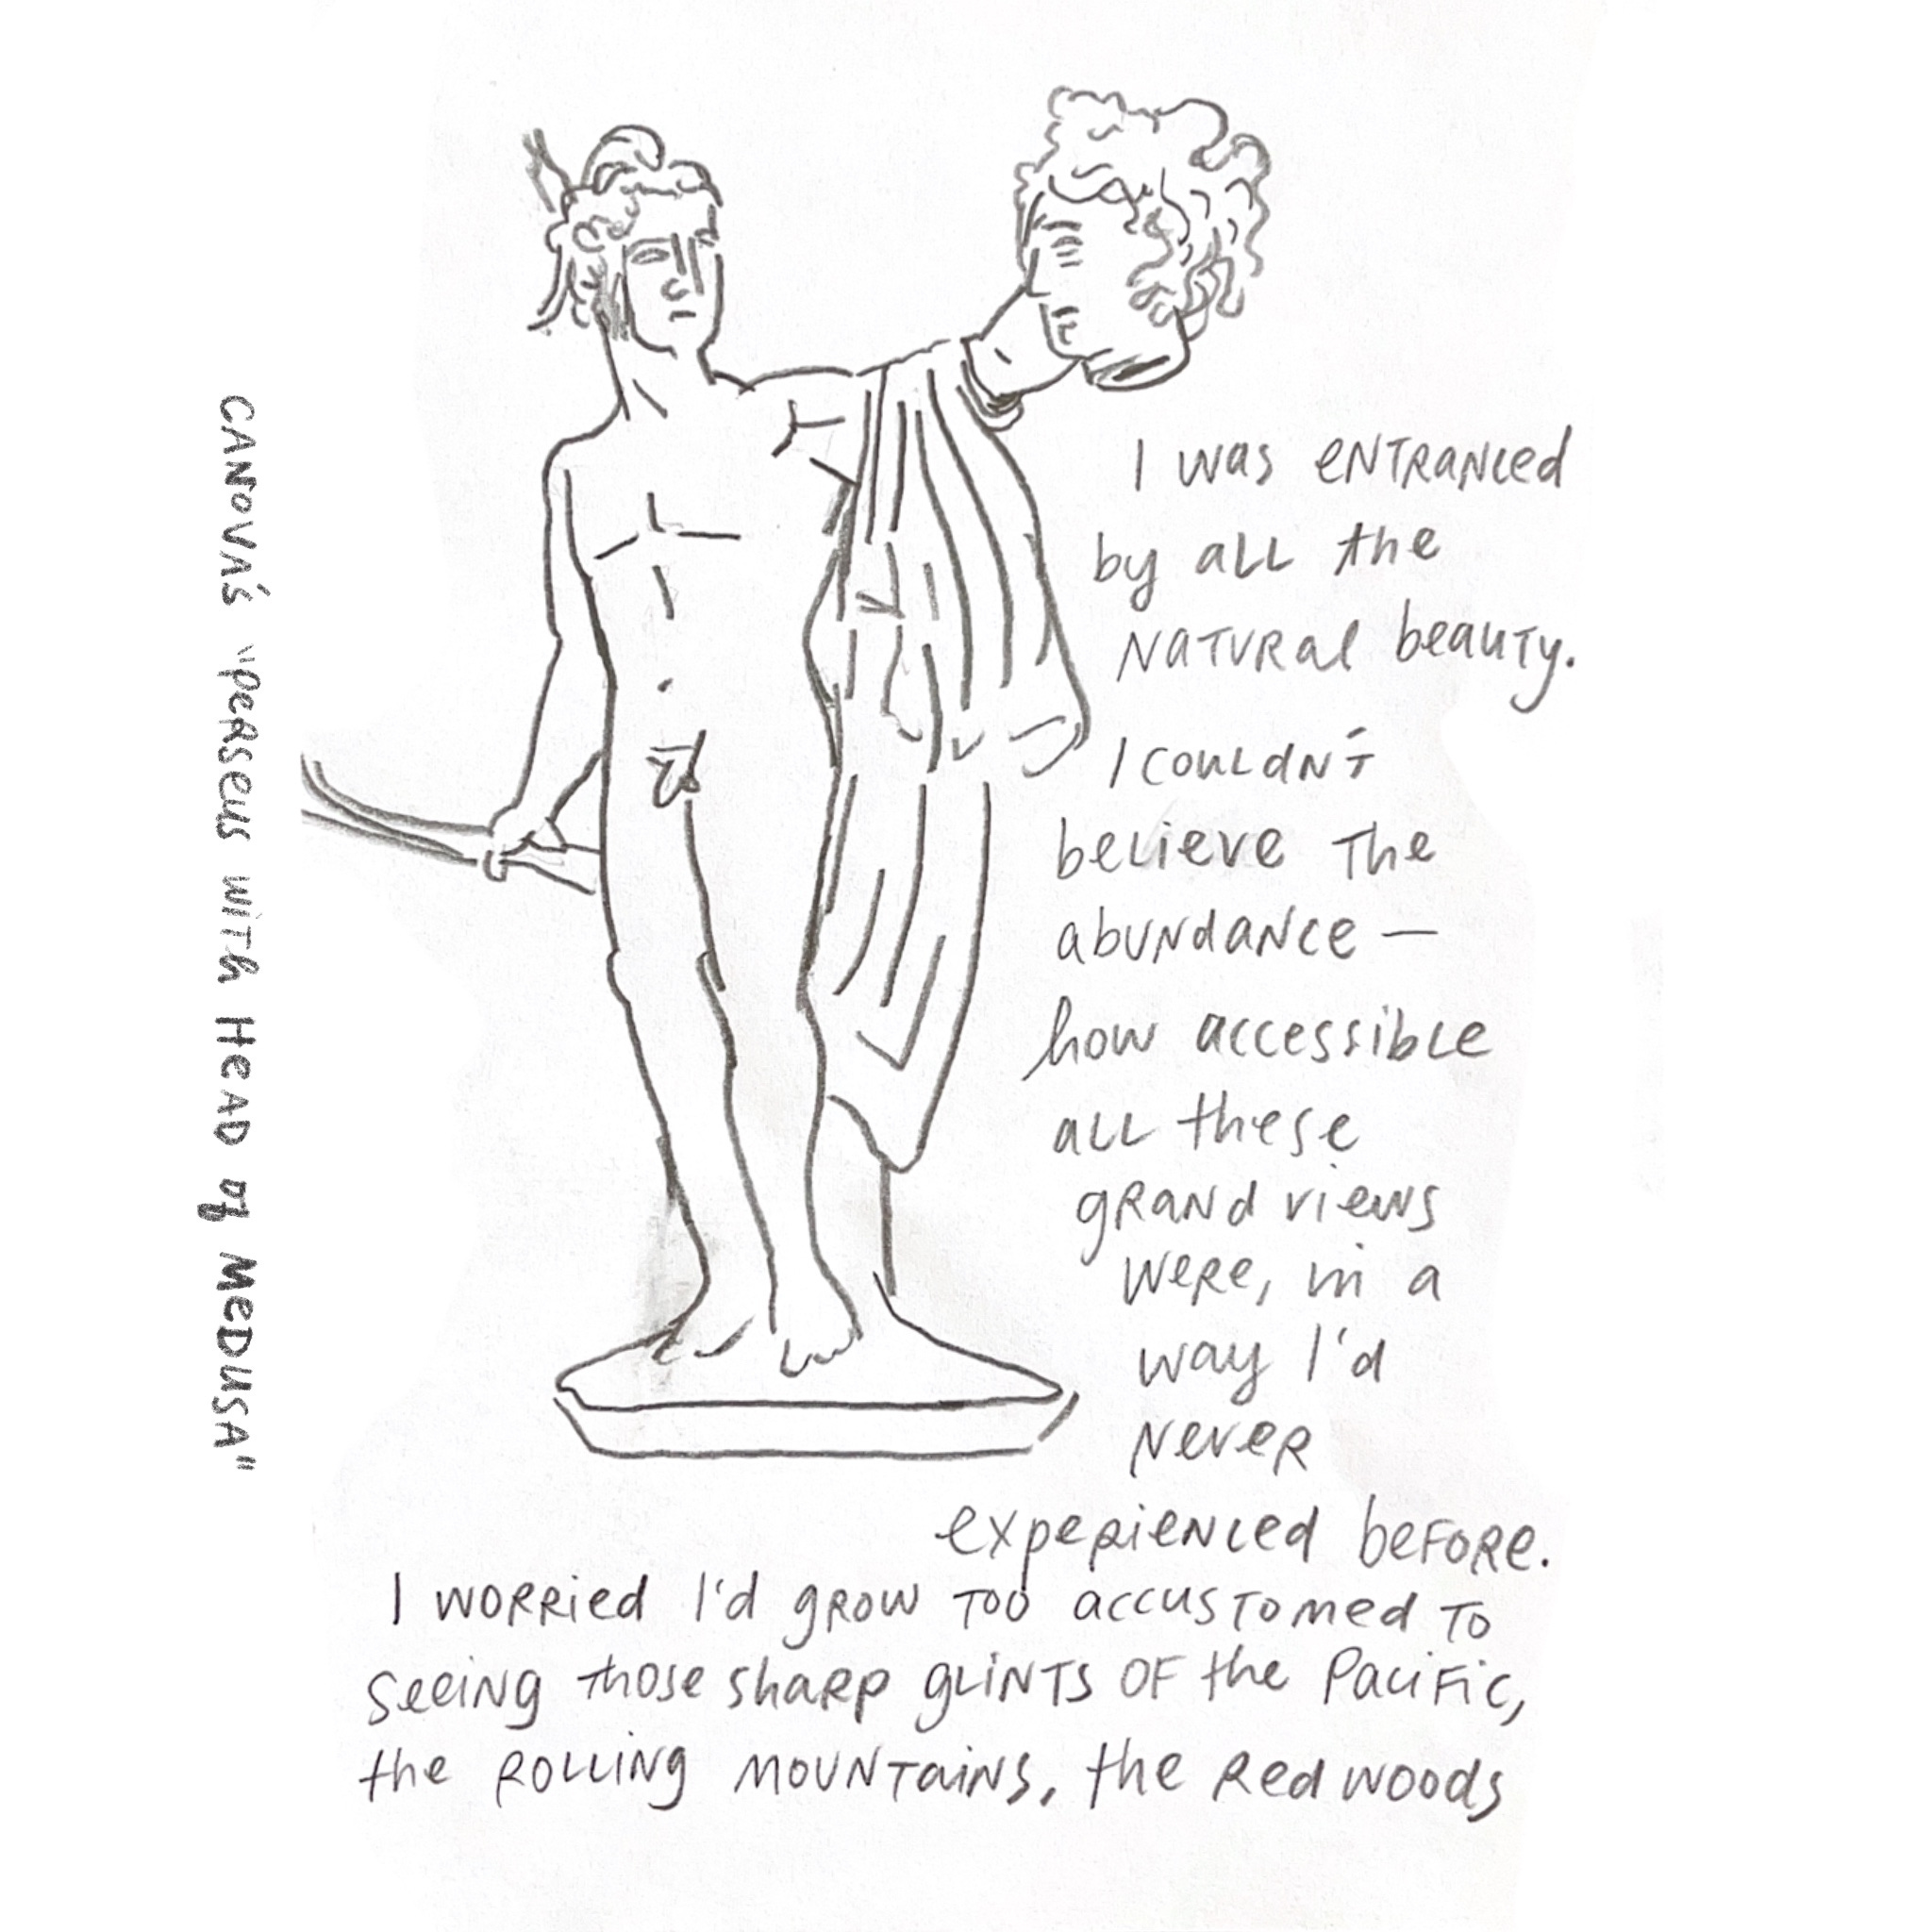 CANOVA's "PERSEUS WITH HEAD of MEDUSA"
I was entranced
by all the
natural beauty.
I couldn't
believe the
abundance —
how accessible
all these
grand views
were, in a
way I'd
never
experienced before.
I worried I'd grow too accustomed to
seeing those sharp glints of the Pacific,
the rolling mountains, the redwoods